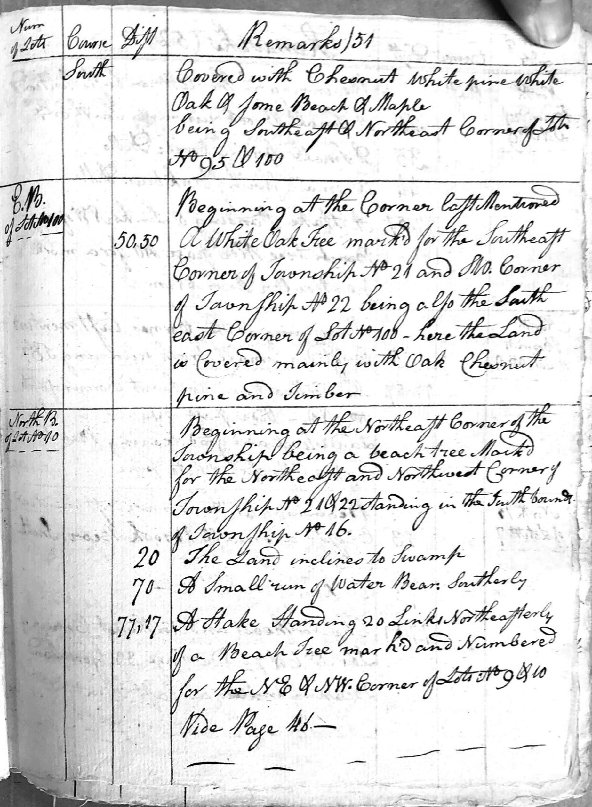 Num of Lots Course Dist Remarks / 51
South Covered with Chesnut White pine White
Oak & some Beach & Maple
being Southeast & Northeast Corner of Lots
No 95 & 100
E. B. of Lot No 100 Beginning at the Corner last Mentioned
50,50 A White Oak Tree mark'd for the Southeast
Corner of Township No 21 and SW. Corner
of Township No 22 being also the South
east Corner of Lot No 100 - here the Land
is Covered mainly with Oak Chesnut
pine and Timber
North B. of Lot No 10 Beginning at the Northeast Corner of the
Township being a beach tree Mark'd
for the Northeast and Northwest Corner of
Township No 21 & 22 standing in the South bounds
of Township No 16.
20 The Land inclines to Swamp
70 A Small run of Water Bear. Southerly
77,17 A Stake Standing 20 Links Northeasterly
of a Beach Tree mark'd and Numbered
for the NE & NW. Corner of Lots No 9 & 10
Vide Page 46 —